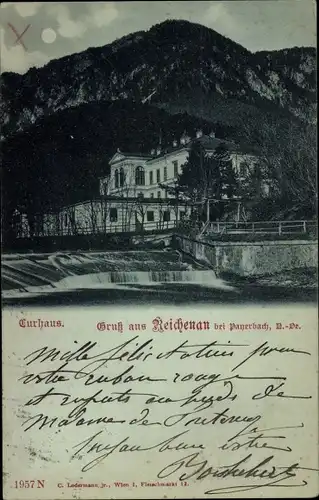 Curhaus. Gruß aus Reichenau bei Payerbach, N.-Oe.
Mille félicitations pour
votre ruban rouge
et aux pieds de
Madame de
votre
1957 N C. Ledermann jr., Wien I, Fleischmarkt 12.